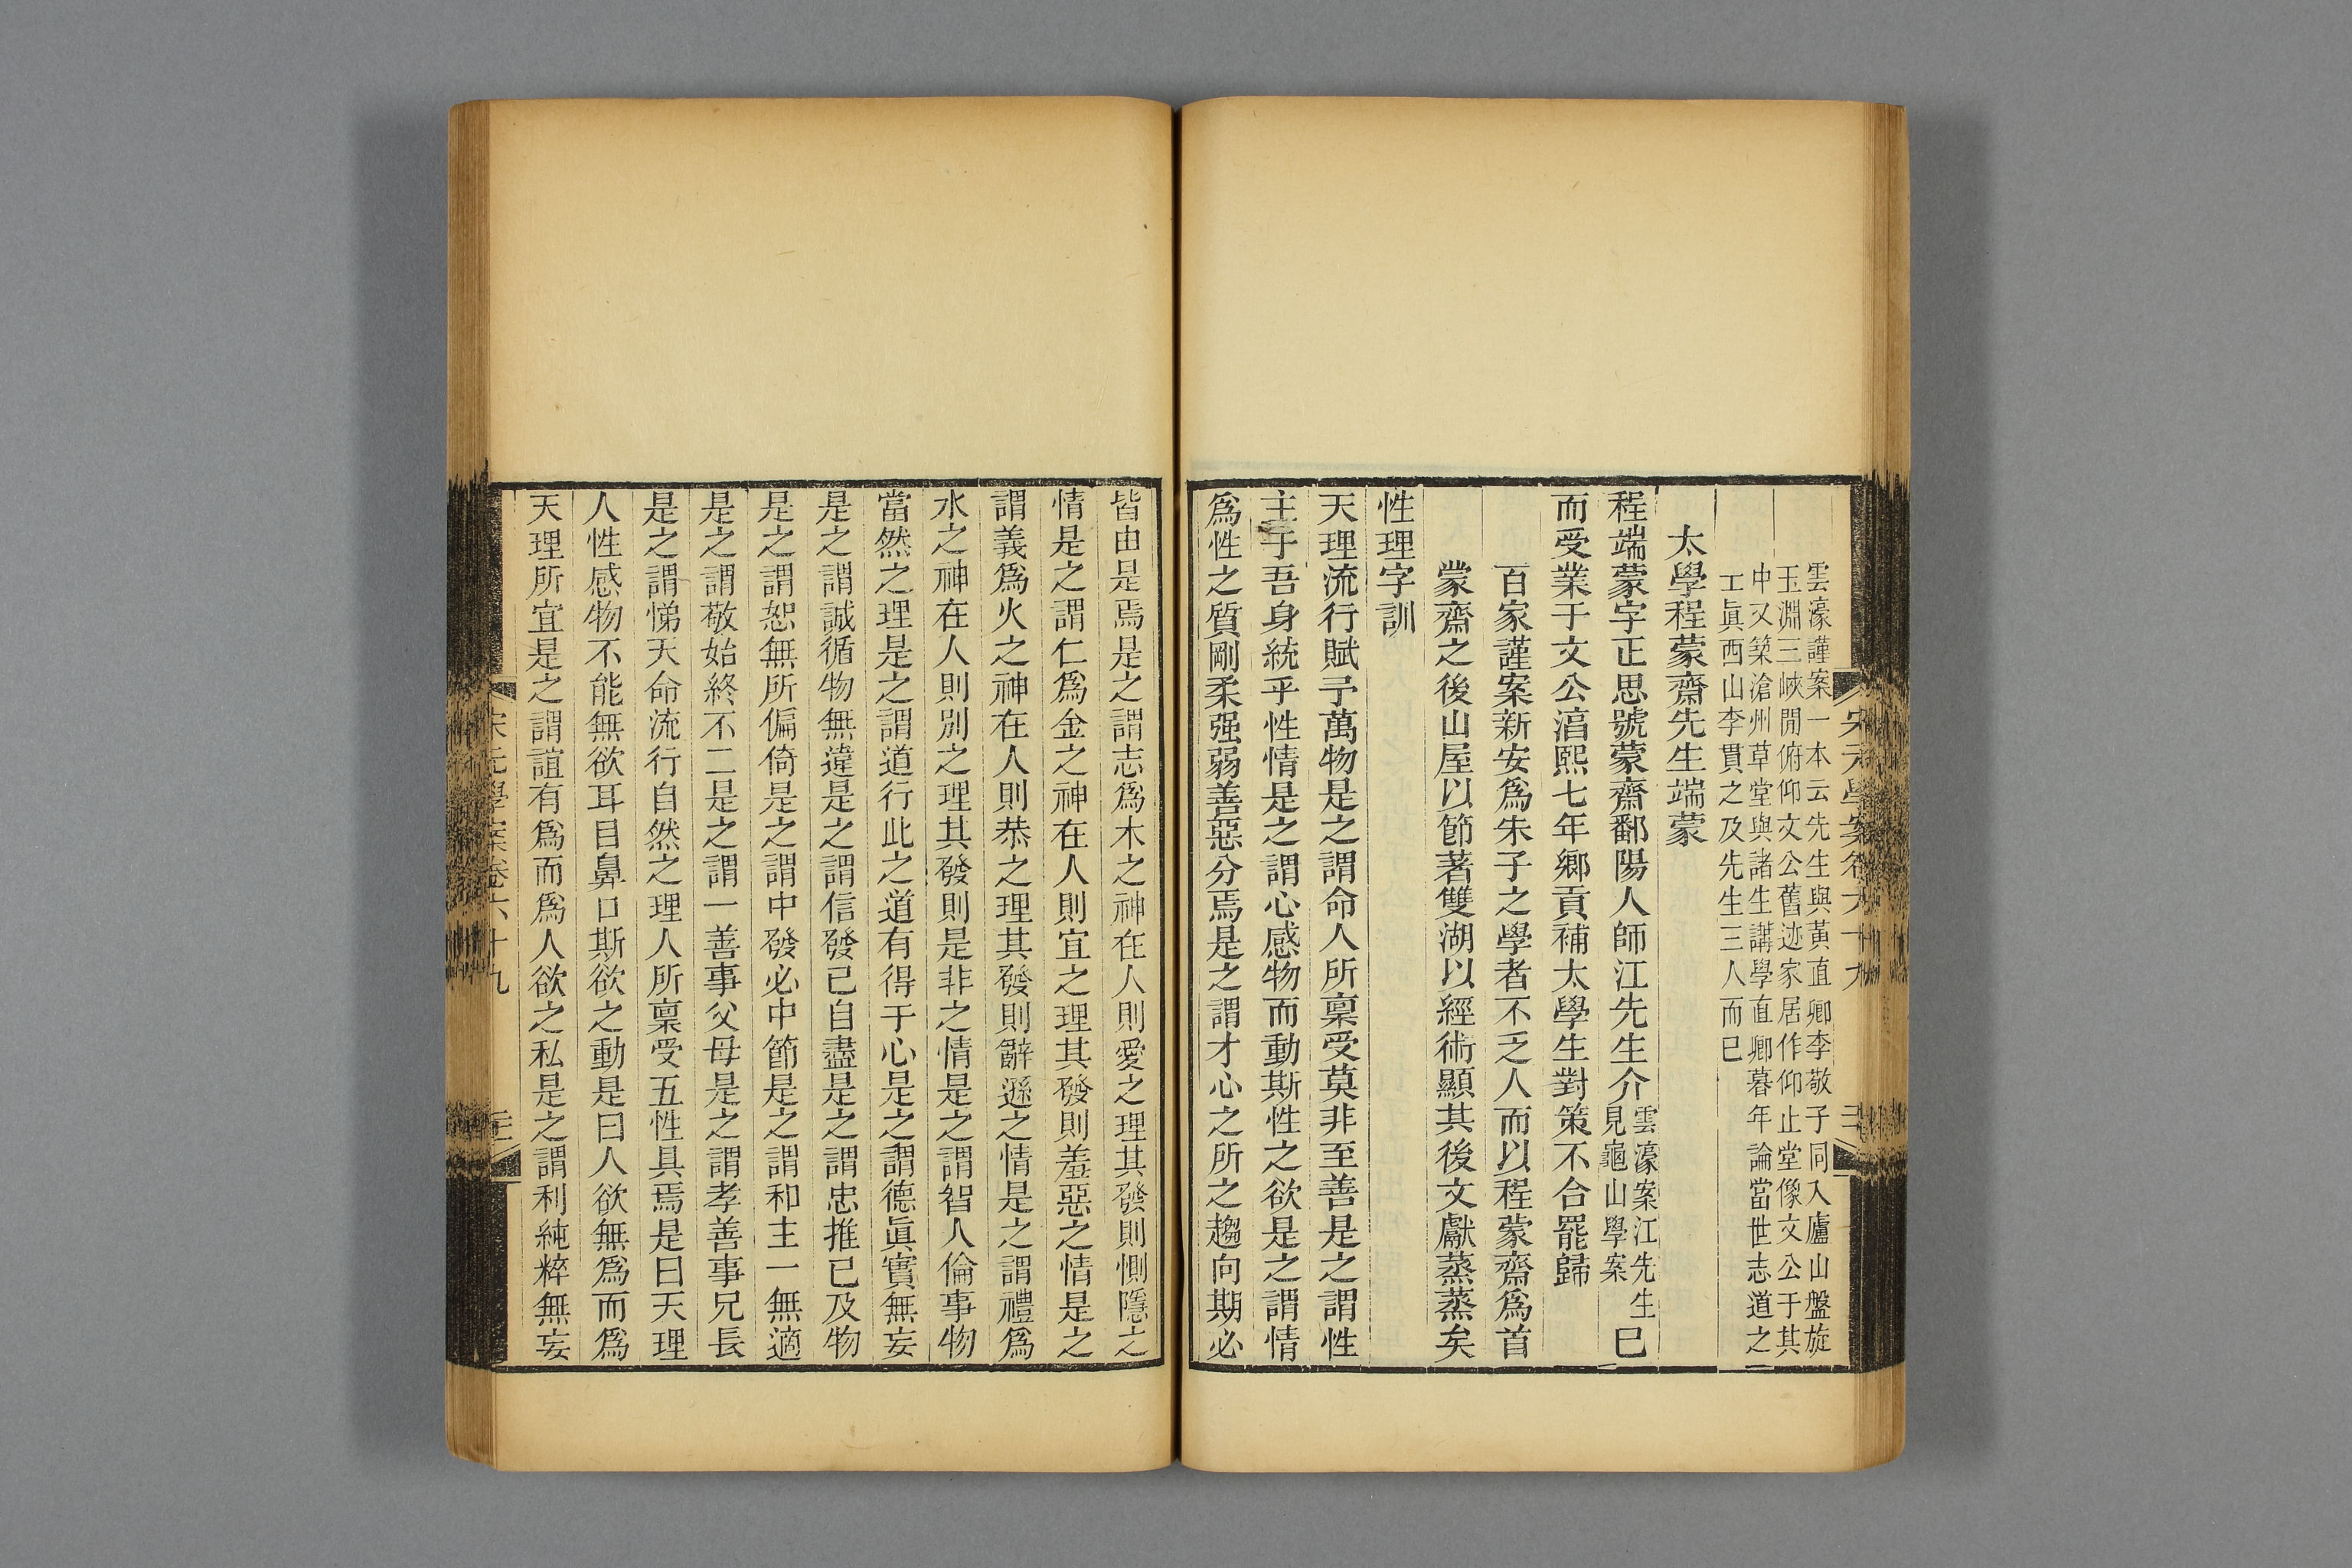 雲濠謹案一本云先生與黃直卿李敬子同入廬山盤旋
玉淵三峽閒俯仰文公舊迹家居作仰止堂像文公于其
中又築滄州草堂與諸生講學直卿暮年論當世志道之
工眞西山李貫之及先生三人而已
太學程蒙齋先生端蒙
程端蒙字正思號蒙齋鄱陽人師江先生介雲濠案江先生見龜山學案已
而受業于文公淳熙七年鄉貢補太學生對策不合罷歸
百家謹案新安爲朱子之學者不乏人而以程蒙齋爲首
蒙齋之後山屋以節著雙湖以經術顯其後文獻蒸蒸矣
性理字訓
天理流行賦予萬物是之謂命人所稟受莫非至善是之謂性
主于吾身統乎性情是之謂心感物而動斯性之欲是之謂情
爲性之質剛柔强弱善惡分焉是之謂才心之所之趨向期必
皆由是焉是之謂志爲木之神在人則愛之理其發則惻隱之
情是之謂仁爲金之神在人則宜之理其發則羞惡之情是之
謂義爲火之神在人則恭之理其發則辭遜之情是之謂禮爲
水之神在人則別之理其發則是非之情是之謂智人倫事物
當然之理是之謂道行此之道有得于心是之謂德眞實無妄
是之謂誠循物無違是之謂信發己自盡是之謂忠推已及物
是之謂恕無所偏倚是之謂中發必中節是之謂和主一無適
是之謂敬始終不二是之謂一善事父母是之謂孝善事兄長
是之謂悌天命流行自然之理人所稟受五性具焉是曰天理
人性感物不能無欲耳目鼻口斯欲之動是曰人欲無爲而爲
天理所宜是之謂誼有爲而爲人欲之私是之謂利純粹無妄
宋元學案卷六十九